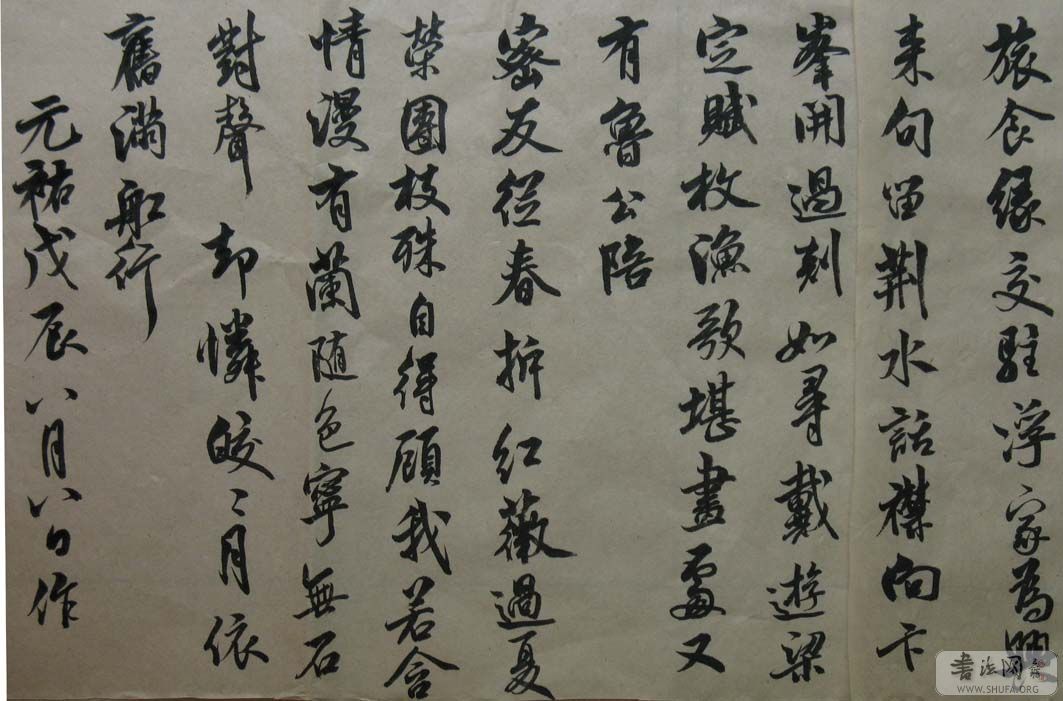 旅食緣交駐浮家為興
来句留荊水話襟向卞
峯開過剡如尋戴遊梁
定賦枚漁歌堪畫處又
有魯公陪
密友從春拆紅薇過夏
榮團枝殊自得顧我若含
情漫有蘭随色寧無石
對聲 却憐皎〻月依
舊滿船行
元祐戊辰八月八日作
书法网
WWW.SHUFA.ORG